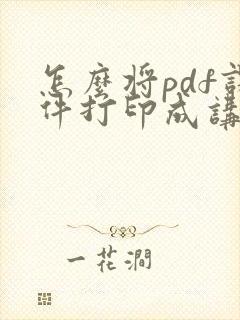 怎麼將pdf課
件打印成講
一花澗